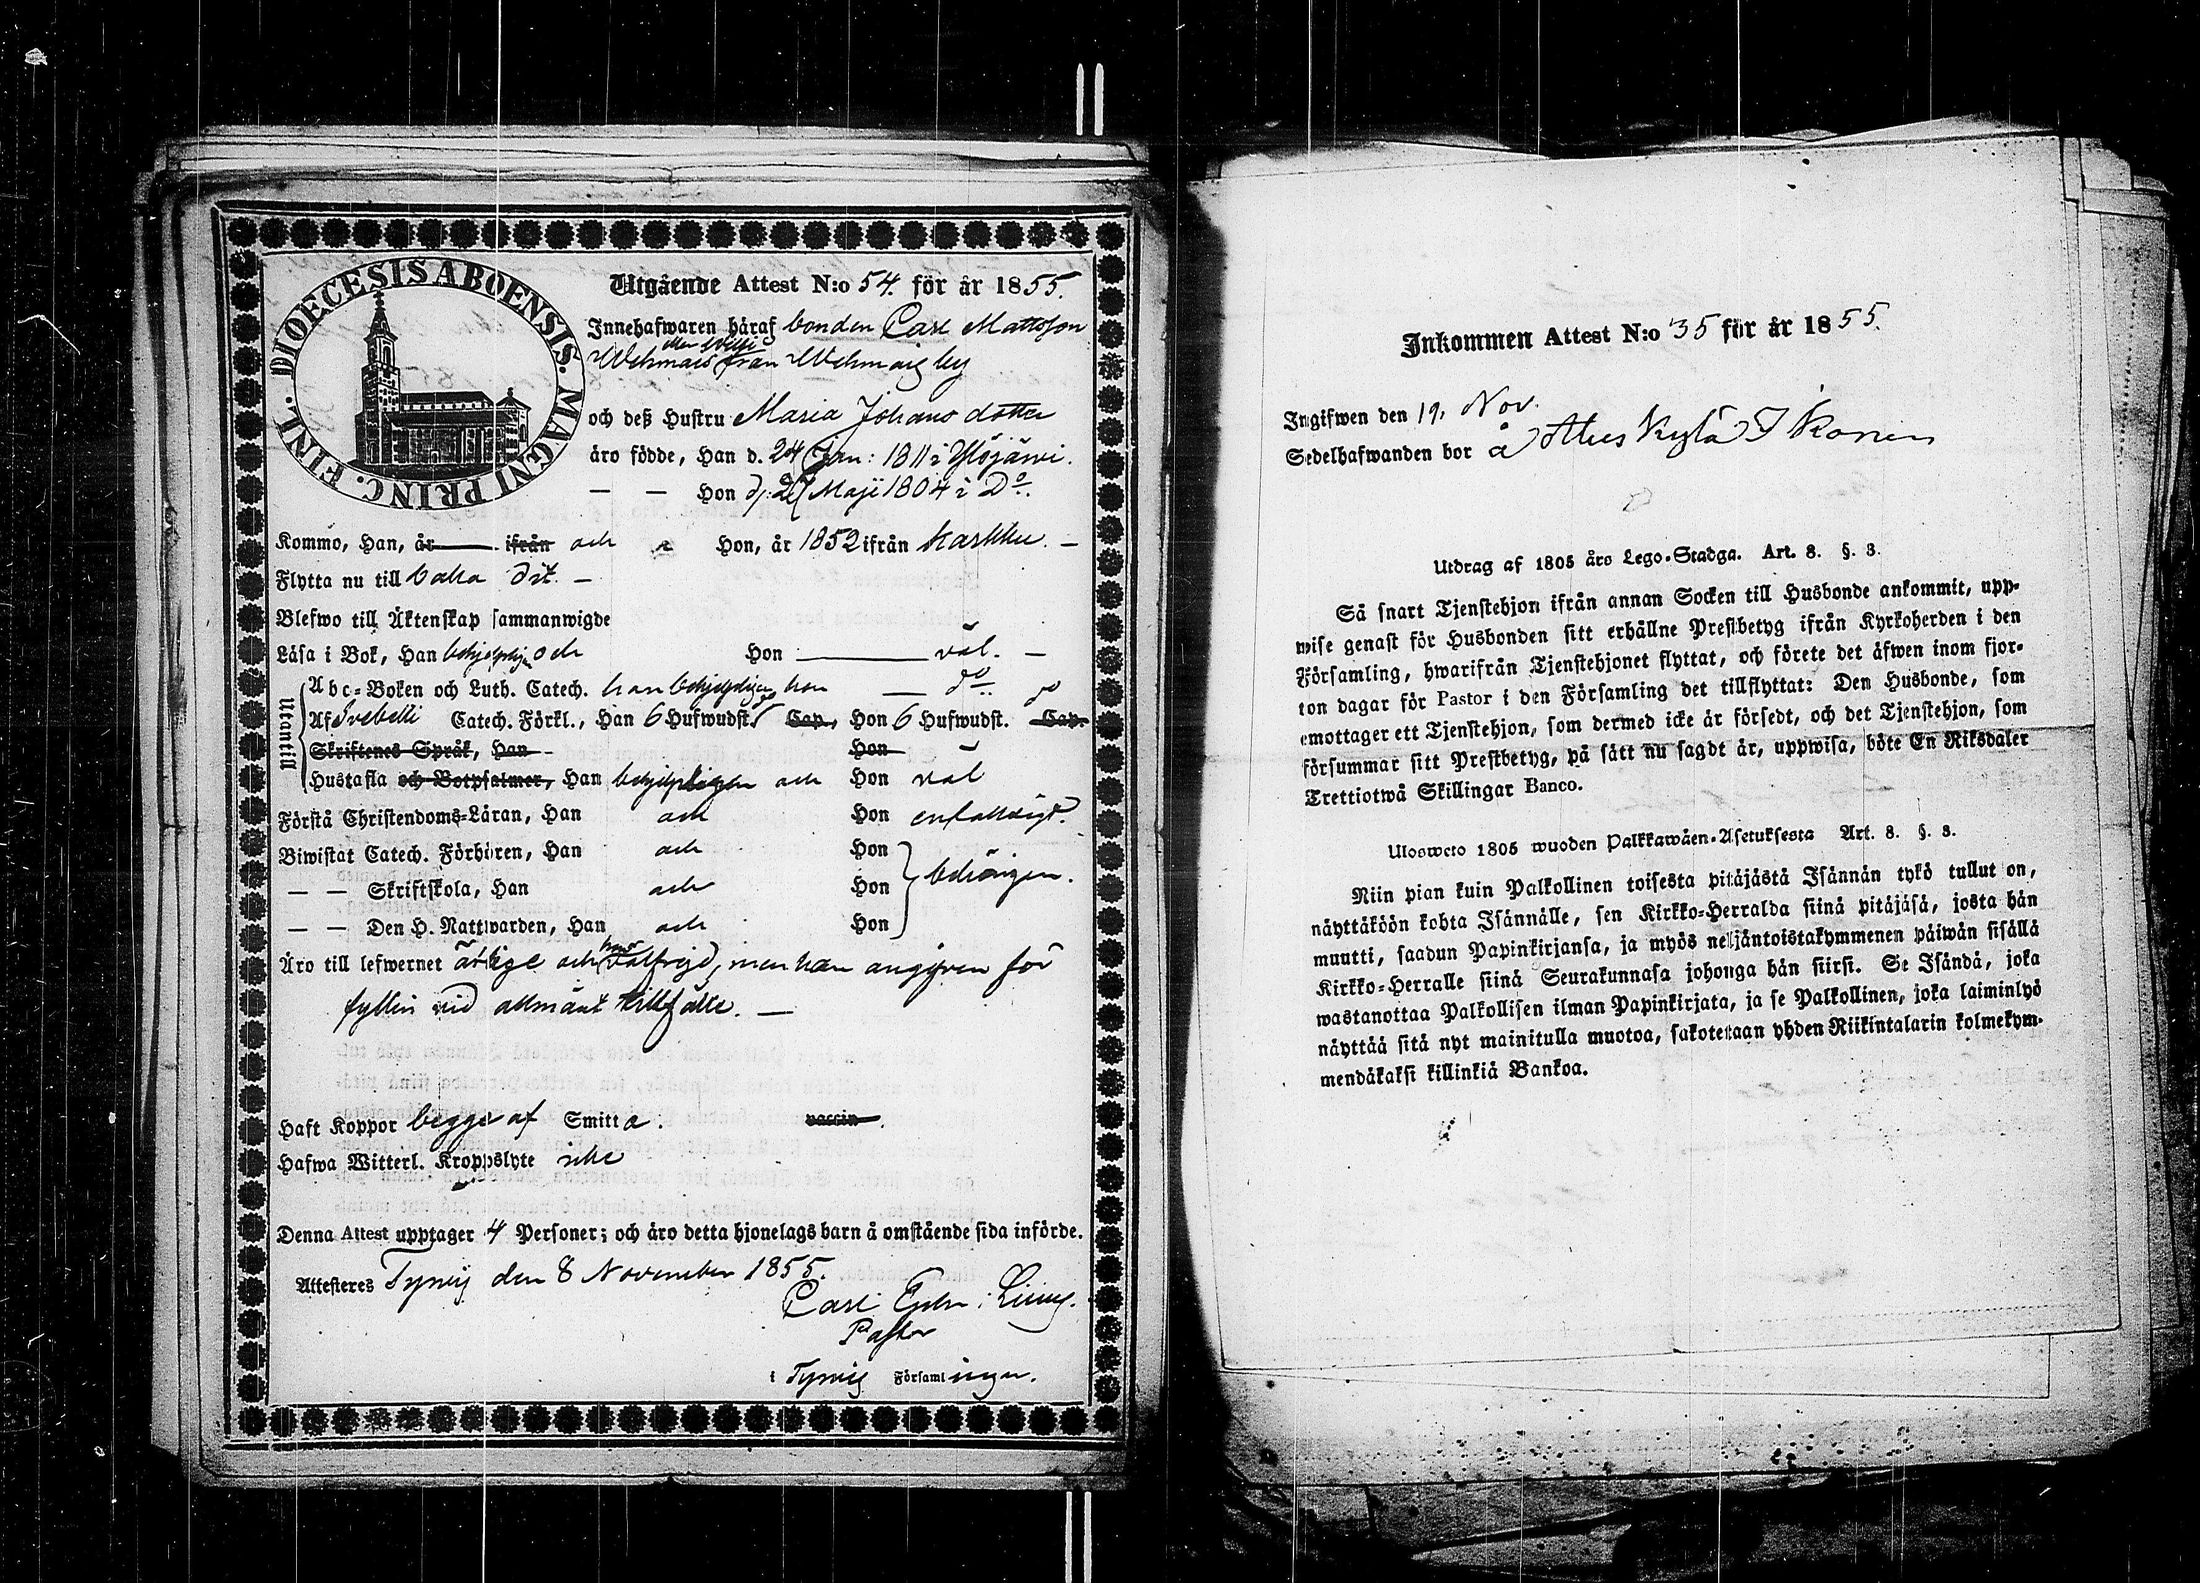 DIOECESIS ABOENSIS. MAGNI PRINC. FINL.
Utgående Attest N:o 54. för år 1855.
Innehafwaren häraf bonden Carl Mattsson
eller Willi
Wehmais från Wehmais by
och deß Hustru Maria Johans dotter
äro födde, Han d. 24 Jan: 1811 i Ylöjärwi.
— — Hon d. 27 Maji 1804 i Do.
Kommo, Han, år ifrån och Hon, år 1852 ifrån Karkku. —
Flytta nu till baka dit. —
Blefwo till Äktenskap sammanwigde
Läsa i Bok, Han behjelpligen och Hon väl. —
Utantill
Abc-Boken och Luth. Catech. han behjelpligen hon — do.
Af Svebelii Catech. Förkl., Han 6 Hufwudst. Cap., Hon 6 Hufwudst. Cap.
Skriftenes Språk, Han - Hon
Hustafla och Botpsalmer, Han behjelpligen och Hon väl
Förstå Christendoms-Läran, Han och Hon enfaldigt.
Biwistat Catech. Förhören, Han och Hon
— — Skriftskola, Han och Hon behörigen.
— — Den H. Nattwarden, Han och Hon
Äro till lefwernet ärlige och välfrejd, men han angifven för
fylleri vid allmänt tillfälle. —
Haft Koppor begge af Smitta. vaccin.
Hafwa Witterl. Kroppslyte icke
Denna Attest upptager 4 Personer; och äro detta hjonelags barn å omstående sida införde.
Attesteres Tyrvis den 8 November 1855.
Carl
Pastor
i Tyrvis Församlingen.
Inkommen Attest N:o 35 för år 1855.
Ingifwen den 19. Nov.
Sedelhafwanden bor å
Utdrag af 1805 års Lego-Stadga. Art. 8. §. 3.
Så snart Tjenstehjon ifrån annan Socken till Husbonde ankommit, upp-
wise genast för Husbonden sitt erhållne Prestbetyg ifrån Kyrkoherden i den
Församling, hwarifrån Tjenstehjonet flyttat, och förete det äfwen inom fjor-
ton dagar för Pastor i den Församling det tillflyttat: Den Husbonde, som
emottager ett Tjenstehjon, som dermed icke är försedt, och det Tjenstehjon, som
försummar sitt Prestbetyg, på sätt nu sagdt är, uppwisa, böte En Riksdaler
Trettiotwå Skillingar Banco.
Ulosweto 1805 wuoden Palkkawäen-Asetuksesta Art. 8. §. 3.
Niin pian kuin Palkollinen toisesta pitäjästä Isännän tykö tullut on,
näyttäköön kohta Isännälle, sen Kirkko-Herralda siinä pitäjäsä, josta hän
muutti, saadun Papinkirjansa, ja myös neljäntoistakymmenen päiwän sisällä
Kirkko-Herralle siinä Seurakunnasa johonga hän siirsi. Se Isändä, joka
wastanottaa Palkollisen ilman Papinkirjata, ja se Palkollinen, joka laiminlyö
näyttää sitä nyt mainitulla muotoa, sakotetaan yhden Riikintalarin kolmekym-
mendäkaksi killinkiä Bankoa.